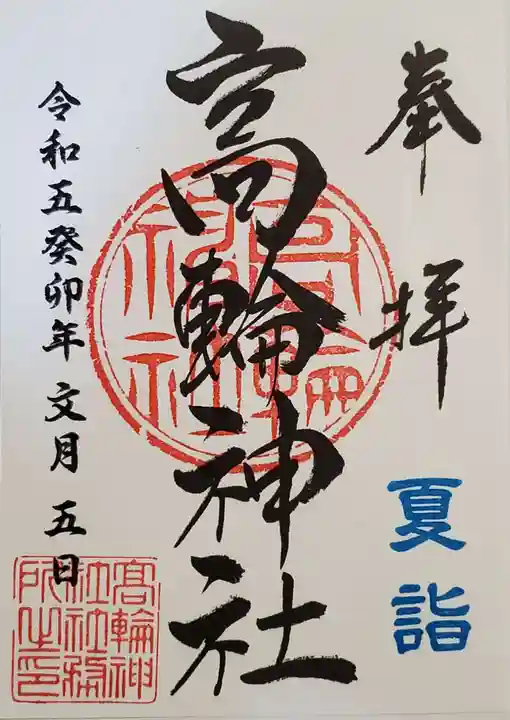 奉拝
夏詣
高輪神社
令和五癸卯年文月五日
高輪神
社社務
所之印